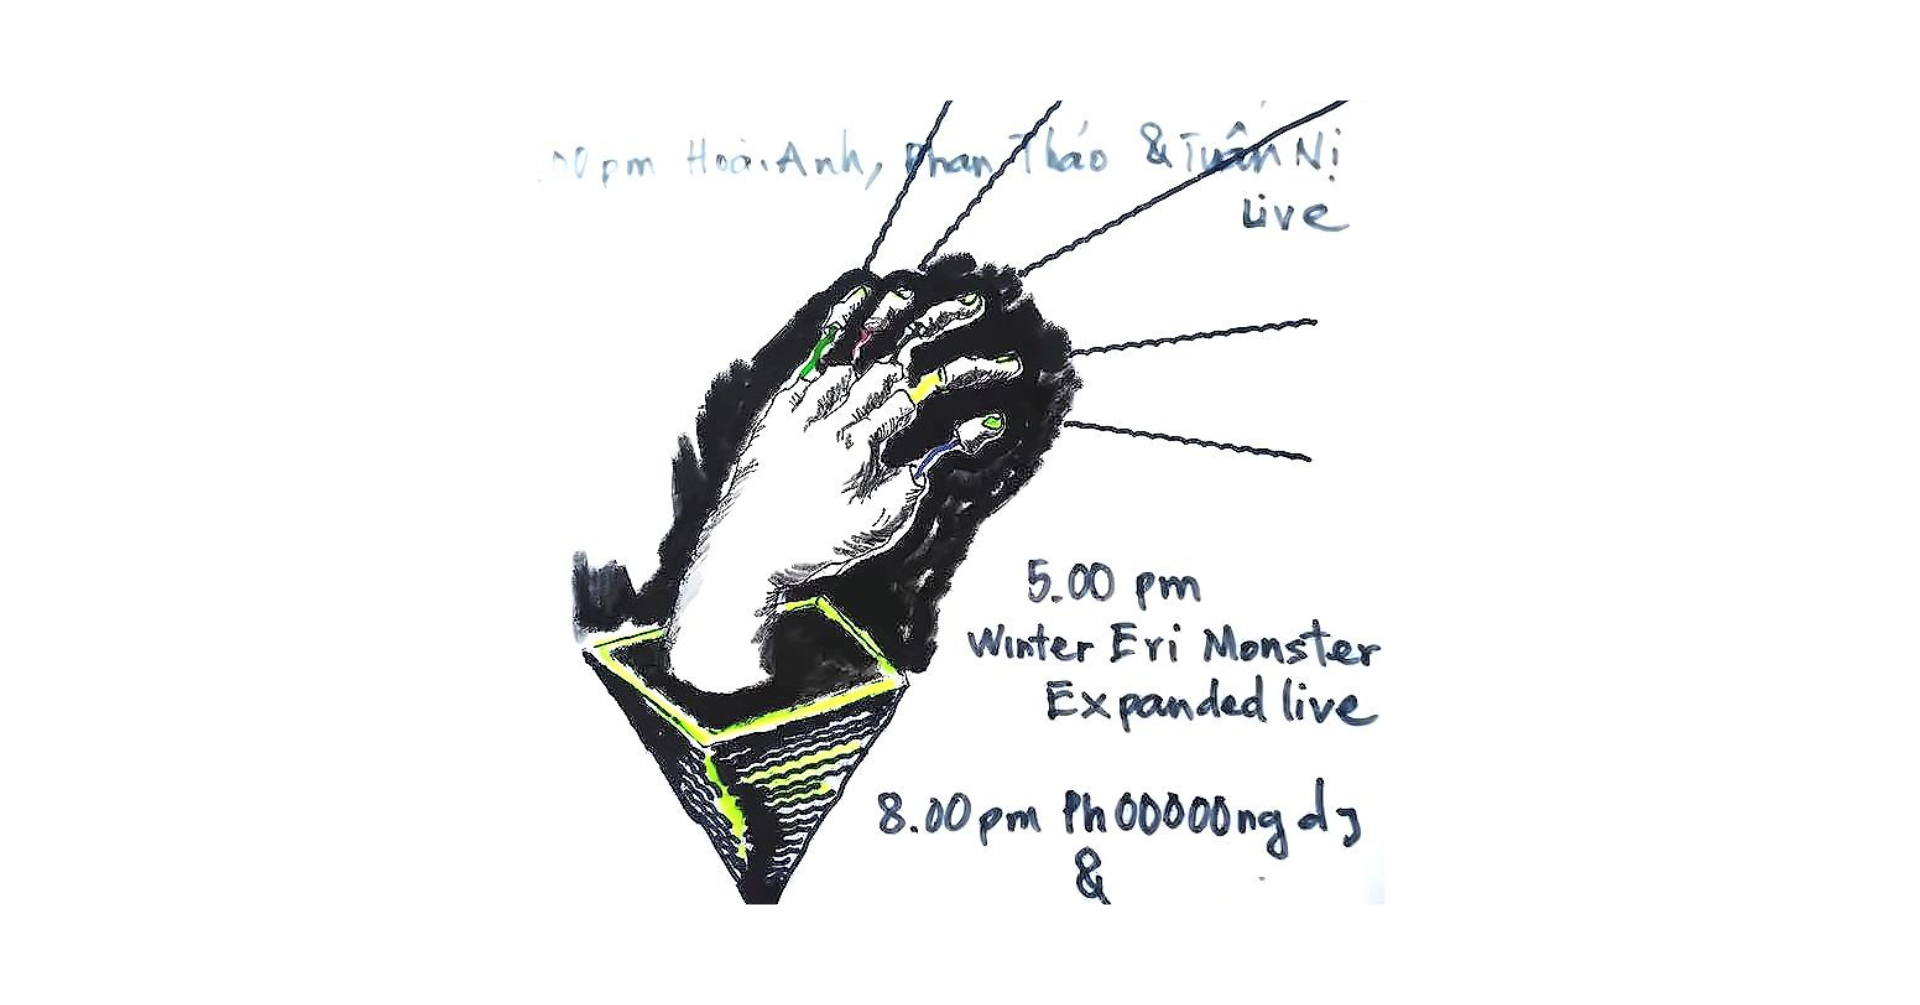 00 pm Hoài Anh, Phan Thảo & Tuấn Nị
Live
5.00 pm
Winter Eri Monster
Expanded live
8.00 pm Ph00000ng dj
&